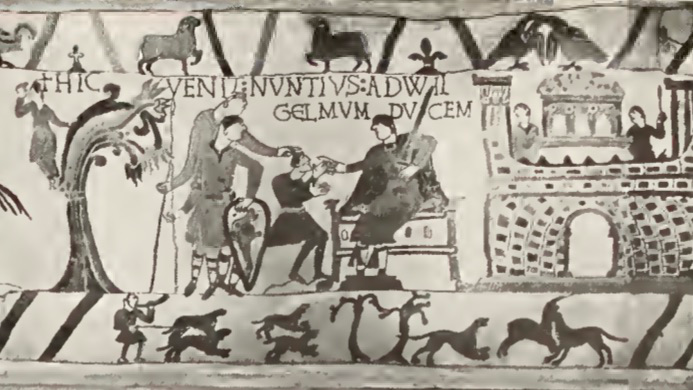 +HIC VENIT:NVNTIVS:ADWIL
GELMVM DVCEM